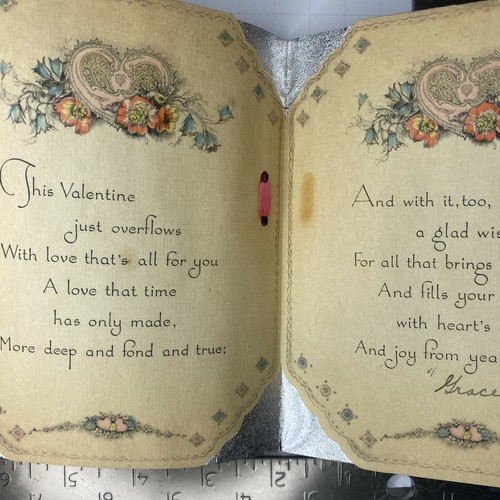 This Valentine
just overflows
With love that's all for you
A love that time
has only made,
More deep and fond and true;
And with it, too,
a glad
For all that brings
And fills your
with heart's
And joy from
"Grace
1 2 3 4 5 6